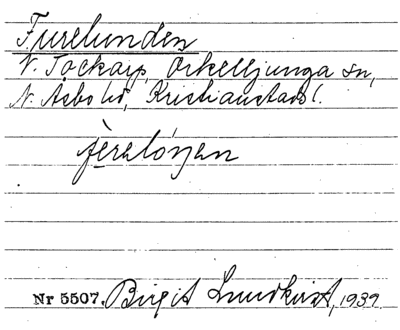 Furelunden
V. Tockarp, Örkelljunga sn,
N. Åsbo hd, Kristianstads l.
Nr 5507. Birgit Lundkvist, 1939.